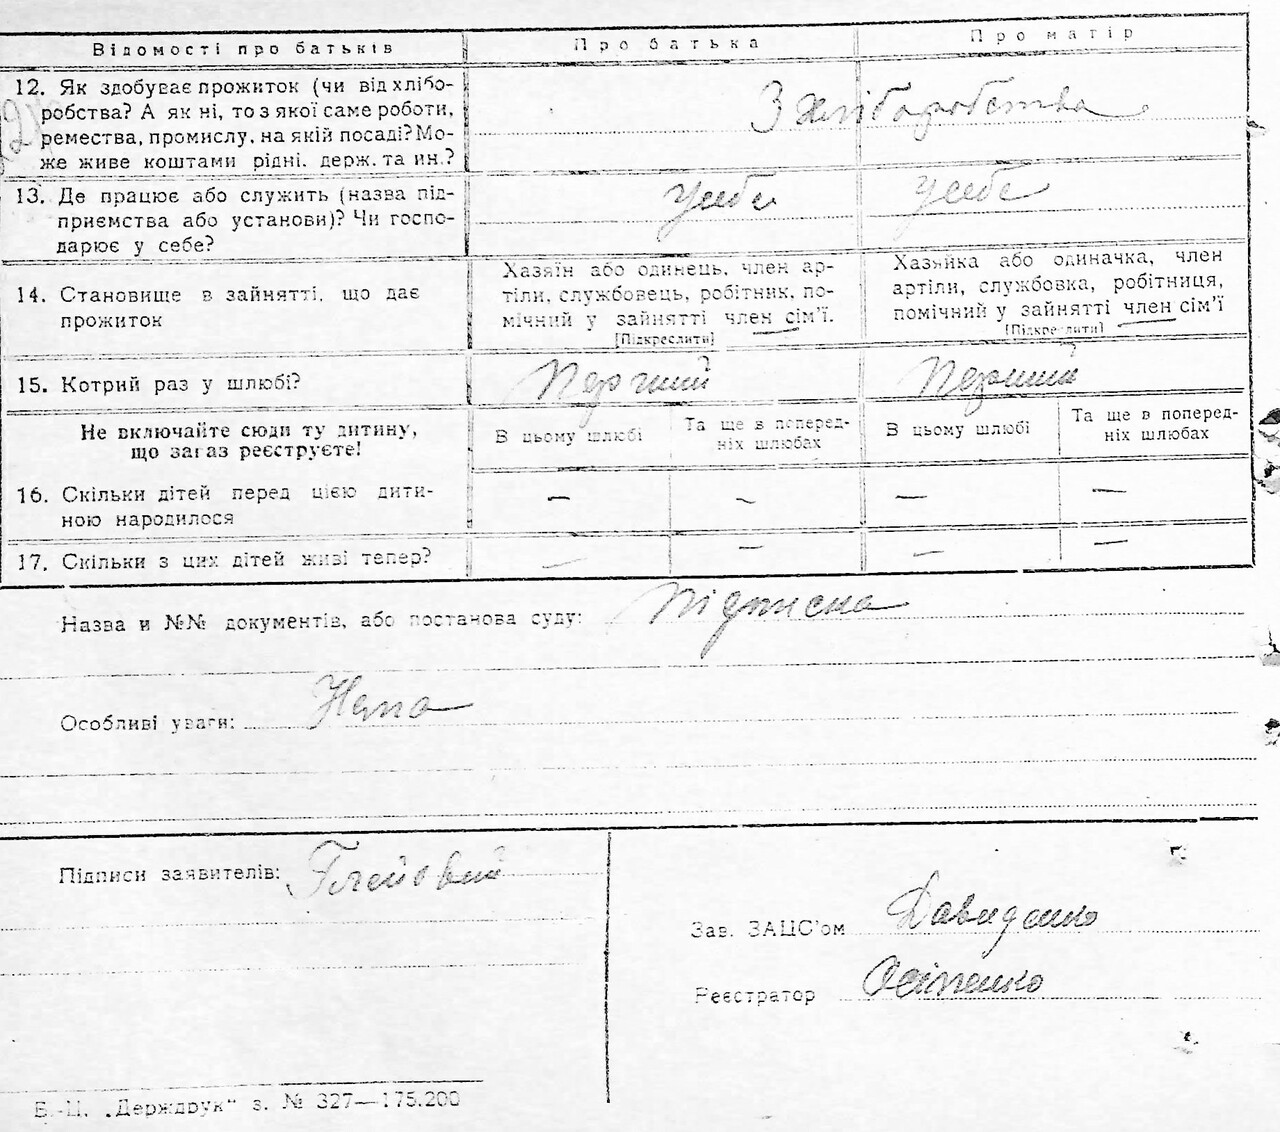 Відомості про батьків
Про батька
Про матір
12. Як здобуває прожиток (чи від хлібо-
робства? А як ні, то з якої саме роботи,
ремества, промислу, на якій посаді? Мо-
же живе коштами рідні, держ. та ин.?
З хліборобства
13. Де працює або служить (назва під-
приємства або установи)? Чи госпо-
дарює у себе?
у себе
у себе
14. Становище в зайнятті, що дає
прожиток
Хазяїн або одинець, член ар-
тіли, службовець, робітник, по-
мічний у зайнятті член сім'ї.
[Підкреслити]
Хазяйка або одиначка, член
артіли, службовка, робітниця,
помічний у зайнятті член сім'ї
[Підкреслити]
15. Котрий раз у шлюбі?
Перший
Перший
Не включайте сюди ту дитину,
що зараз реєструєте!
В цьому шлюбі
Та ще в поперед-
ніх шлюбах
В цьому шлюбі
Та ще в поперед-
ніх шлюбах
16. Скільки дітей перед цією дити-
ною народилося
— — — —
17. Скільки з цих дітей живі тепер?
— — — —
Назва и №№ документів, або постанова суду: Підписка
Особливі уваги:
Підписи заявителів:
Зав. ЗАЦС'ом Давиденко
Реєстратор Осіпенко
Б.-Ц. „Держдрук" з. № 327—175.200